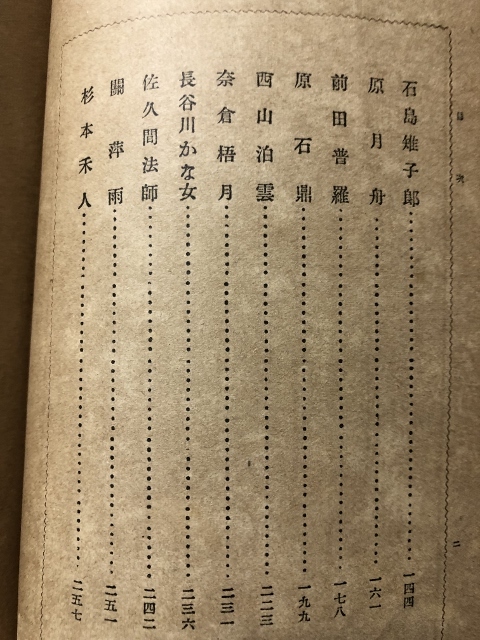 目次
石島雉子郎 一四四
原月舟 一六一
前田普羅 一七八
原石鼎 一九九
西山泊雲 二二三
奈倉梧月 二三一
長谷川かな女 二三六
佐久間法師 二四二
關萍雨 二五一
杉本禾人 二五七
二